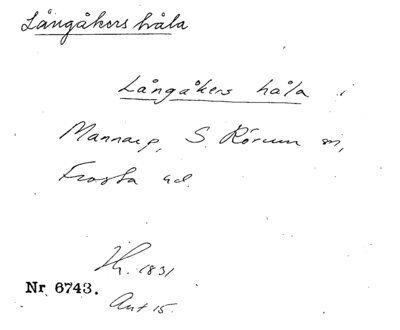 Långåkers håla
Långåkers håla i
Mannarp, S. Rörum sn,
Frosta hd.
Th. 1831
Nr 6743.
Ant 15.